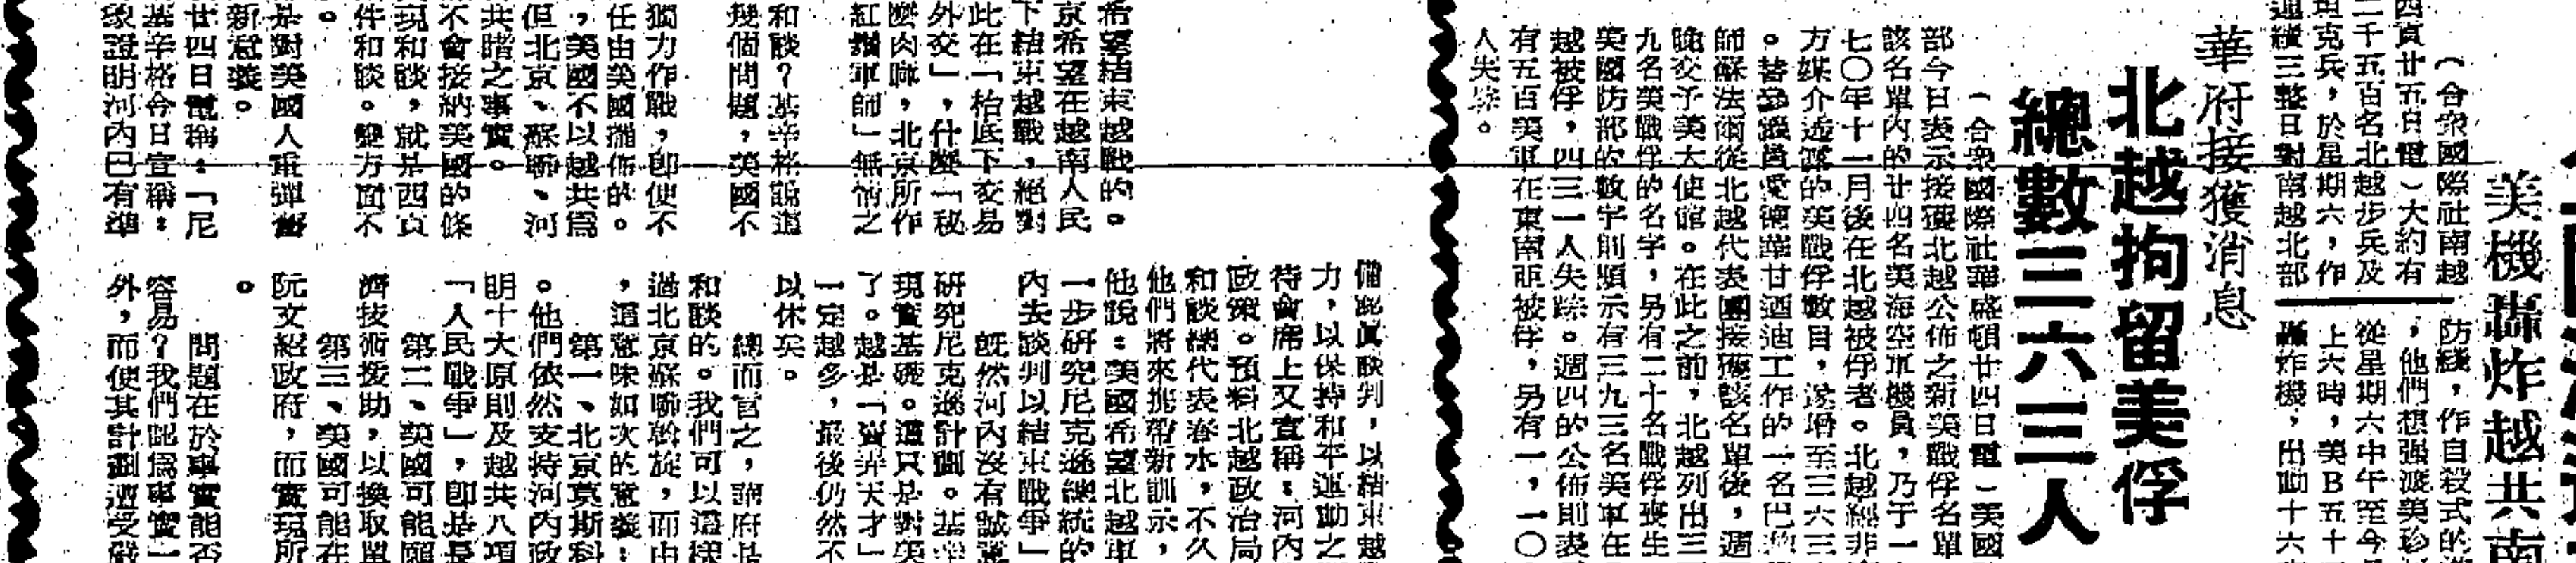 美機轟炸越共南
（合衆國際社南越
西貢廿五日電）大約有
二千五百名北越步兵及
坦克兵，於星期六，作
連續三整日對南越北部
防綫，作自殺式的
，他們想强渡美
從星期六中午至今
上六時，美B五十
轟炸機，出動十六
華府接獲消息
北越拘留美俘
總數三六三人
（合衆國際社華盛頓廿四日電）美國
部今日表示接獲北越公佈之新美戰俘名單
該名單內的廿四名美海空軍機員，乃于一
七〇年十一月後在北越被俘者。北越經非
方媒介透露的美戰俘數目，遂增至三六三
。替參議員愛德華甘迺迪工作的一名巴
師蘇法爾從北越代表團接獲該名單後，週
晚交予美大使館。在此之前，北越列出三
九名美戰俘的名字，另有二十名戰俘喪生
美國防部的數字則顯示有三九三名美軍在
越被俘，四三一人失踪。週四的公佈則表
有五百美軍在東南亞被俘，另有一，一〇
人失踪。
希望結束越戰的。
京希望在越南人民
下結束越戰，絕對
此在「枱底下交易
外交」，什麼「秘
麼肉陣，北京所作
紅攔軍師」無情之
和談？基辛格說道
幾個問題，美國不
獨力作戰，卽使不
任由美國擺佈的。
，美國不以越共爲
但北京、蘇聯、河
共睹之事實。
不會接納美國的條
現和談，就是西貢
件和談。雙方面不
。
是對美國人重彈舊
新意義。
廿四日電稱：「尼
基辛格今日宣稱：
象證明河內已有準
備認眞談判，以結束越
力，以保持和平運動之
待會席上又宣稱：河內
政策。預料北越政治局
和談總代表春水，不久
他們將來携帶新訓示，
他說：美國希望北越軍
一步研究尼克遜總統的
內去談判以結束戰爭」
旣然河內沒有誠意
研究尼克遜計劃。基辛
現實基礎。這只是對美
了。越是「賣弄天才」
一定越多，最後仍然不
以休矣。
總而言之，華府是
和談的。我們可以這樣
過北京蘇聯斡旋，而由
，這意味如次的意義：
第一、北京莫斯科
。他們依然支持河內政
明十大原則及越共八項
「人民戰爭」，卽是是
第二、美國可能願
濟技術援助，以換取單
第三、美國可能在
阮文紹政府，而實現所
。
問題在於事實能否
容易？我們認爲事實一
外，而使其計劃遭受破